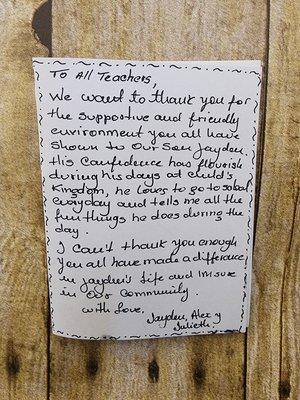 To All Teachers,
We want to thank you for
the supportive and friendly
environment you all have
shown to Our Son Jayden.
His Confidence has flourish
during his days at child's
Kingdom, he loves to go to school
everyday and tells me all the
fun things he does during the
day.
I can't thank you enough
you all have made a difference
in Jayden's Life and Im sure
in Our Community.
with Love,
Jayden, Alex y
Julieth.